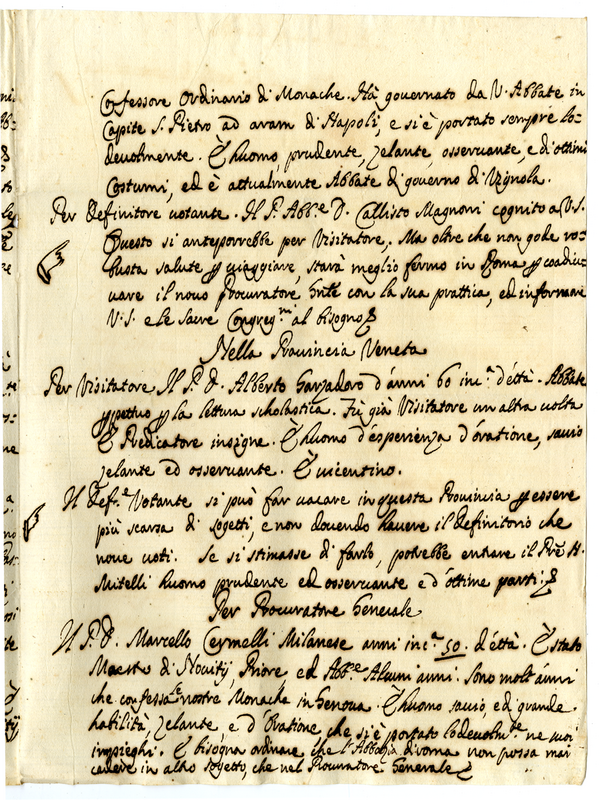 Confessore Ordinario di Monache. Hà governato da V. Abbate in
Capite S. Pietro ad aram di Napoli, e si è portato sempre lo-
deuolmente. È huomo prudente, zelante, osseruante, e di ottimi
Costumi, ed è attualmente Abbate di gouerno di Vignola.
Per Definitore uotante. Il P. Abb.e D. Callisto Magnoni cognito a V.S.
Questo si anteporrebbe per Visitatore. Ma oltre che non gode ro-
busta salute p uiaggiare, starà meglio fermo in Roma p coadiu-
uare il nouo Procuratore Gnle con la sua prattica, ed informare
V.S. e le Sacre Congreg.ni al bisogno
Nella Prouincia Veneta
Per Visitatore Il P. D. Alberto Garzadoro d'anni 60 inc.a d'età. Abbate
ppetuo p la lettura scholastica. Fù già Visitatore un altra uolta
È Predicatore insigne. È huomo d'esperienza d'oratione, sauio
zelante ed osseruante. È uicentino.
Il Def.e Votante si può far uacare in questa Prouincia p essere
più scarsa di sogetti, e non douendo hauere il definitorio che
noue uoti. Se si stimasse di farlo, potrebbe entrare il Pre H.
Mitelli huomo prudente ed osseruante e d'ottime parti:
Per Procuratore Generale
Il P. D. Marcello Cermelli Milanese anni inc.a 50. d'età. È stato
Maestro di Nouitij, Priore, ed Abb.e Alcuni anni. Sono molt'anni
che confessa le nostre Monache in Genoua. È huomo sauio, ed grande
habilità, zelante, e d'Oratione, che si è portato lodeuolm.te ne suoi
impieghi. E bisogna ordinare che l'Abbazia di roma non possa mai
cadere in altro sogetto, che nel Procuratore Generale